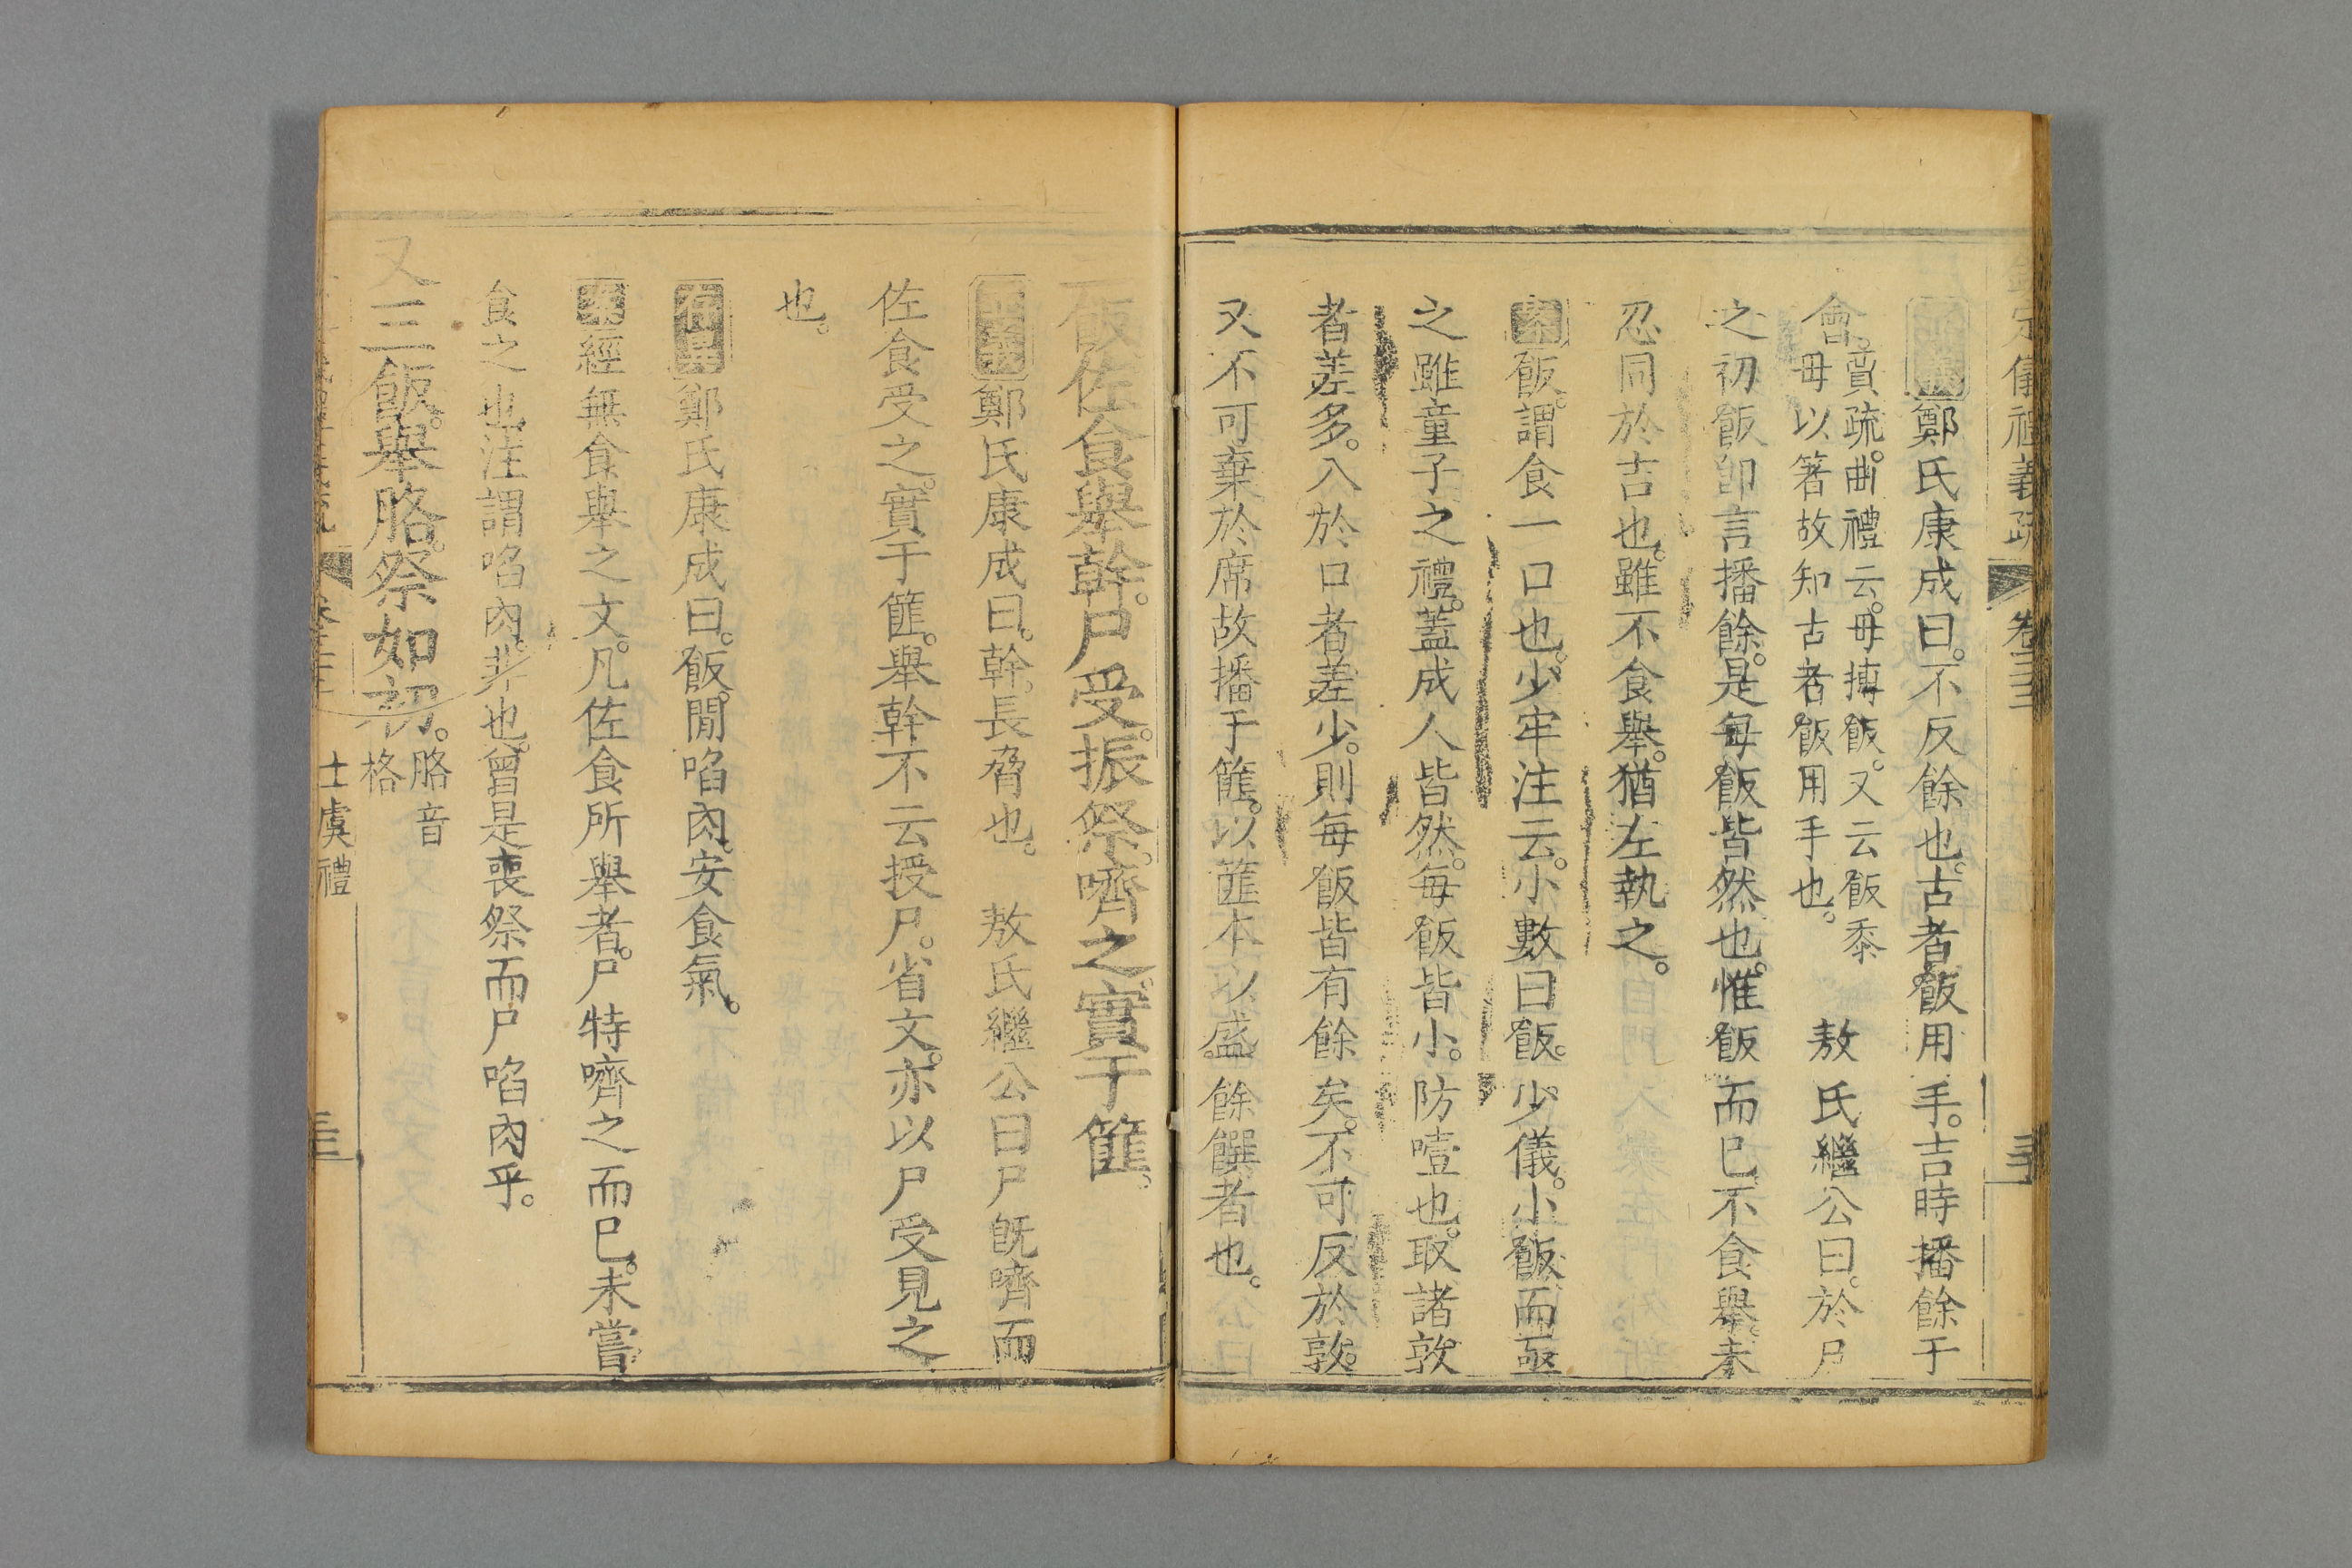 欽定儀禮義疏 卷三十三
正義鄭氏康成曰。不反餘也。古者飯用手。吉時播餘于
會。賈疏。曲禮云。毋摶飯。又云飯黍
毋以箸故知古者飯用手也。 敖氏繼公曰。於尸
之初飯卽言播餘。是每飯皆然也。惟飯而已不食舉。未
忍同於吉也。雖不食舉。猶左執之。
案飯。謂食一口也。少牢注云。小數曰飯。少儀。小飯而亟
之雖童子之禮。蓋成人皆然。每飯皆小。防噎也。取諸敦
者差多。入於口者差少。則每飯皆有餘矣。不可反於敦。
又不可棄於席故播于篚。以篚本以盛餘饌者也。
三飯佐食舉幹。尸受。振祭。嚌之。實于篚。
正義鄭氏康成曰。幹。長脅也。 敖氏繼公曰尸旣嚌而
佐食受之。實于篚。舉幹不云授尸。省文。亦以尸受見之
也。
存異鄭氏康成曰。飯。閒啗肉。安食氣。
案經無食舉之文。凡佐食所舉者。尸特嚌之而已。未嘗
食之也注謂啗肉。非也。曾是喪祭而尸啗肉乎。
又三飯。舉胳。祭如初。胳音
格
士虞禮